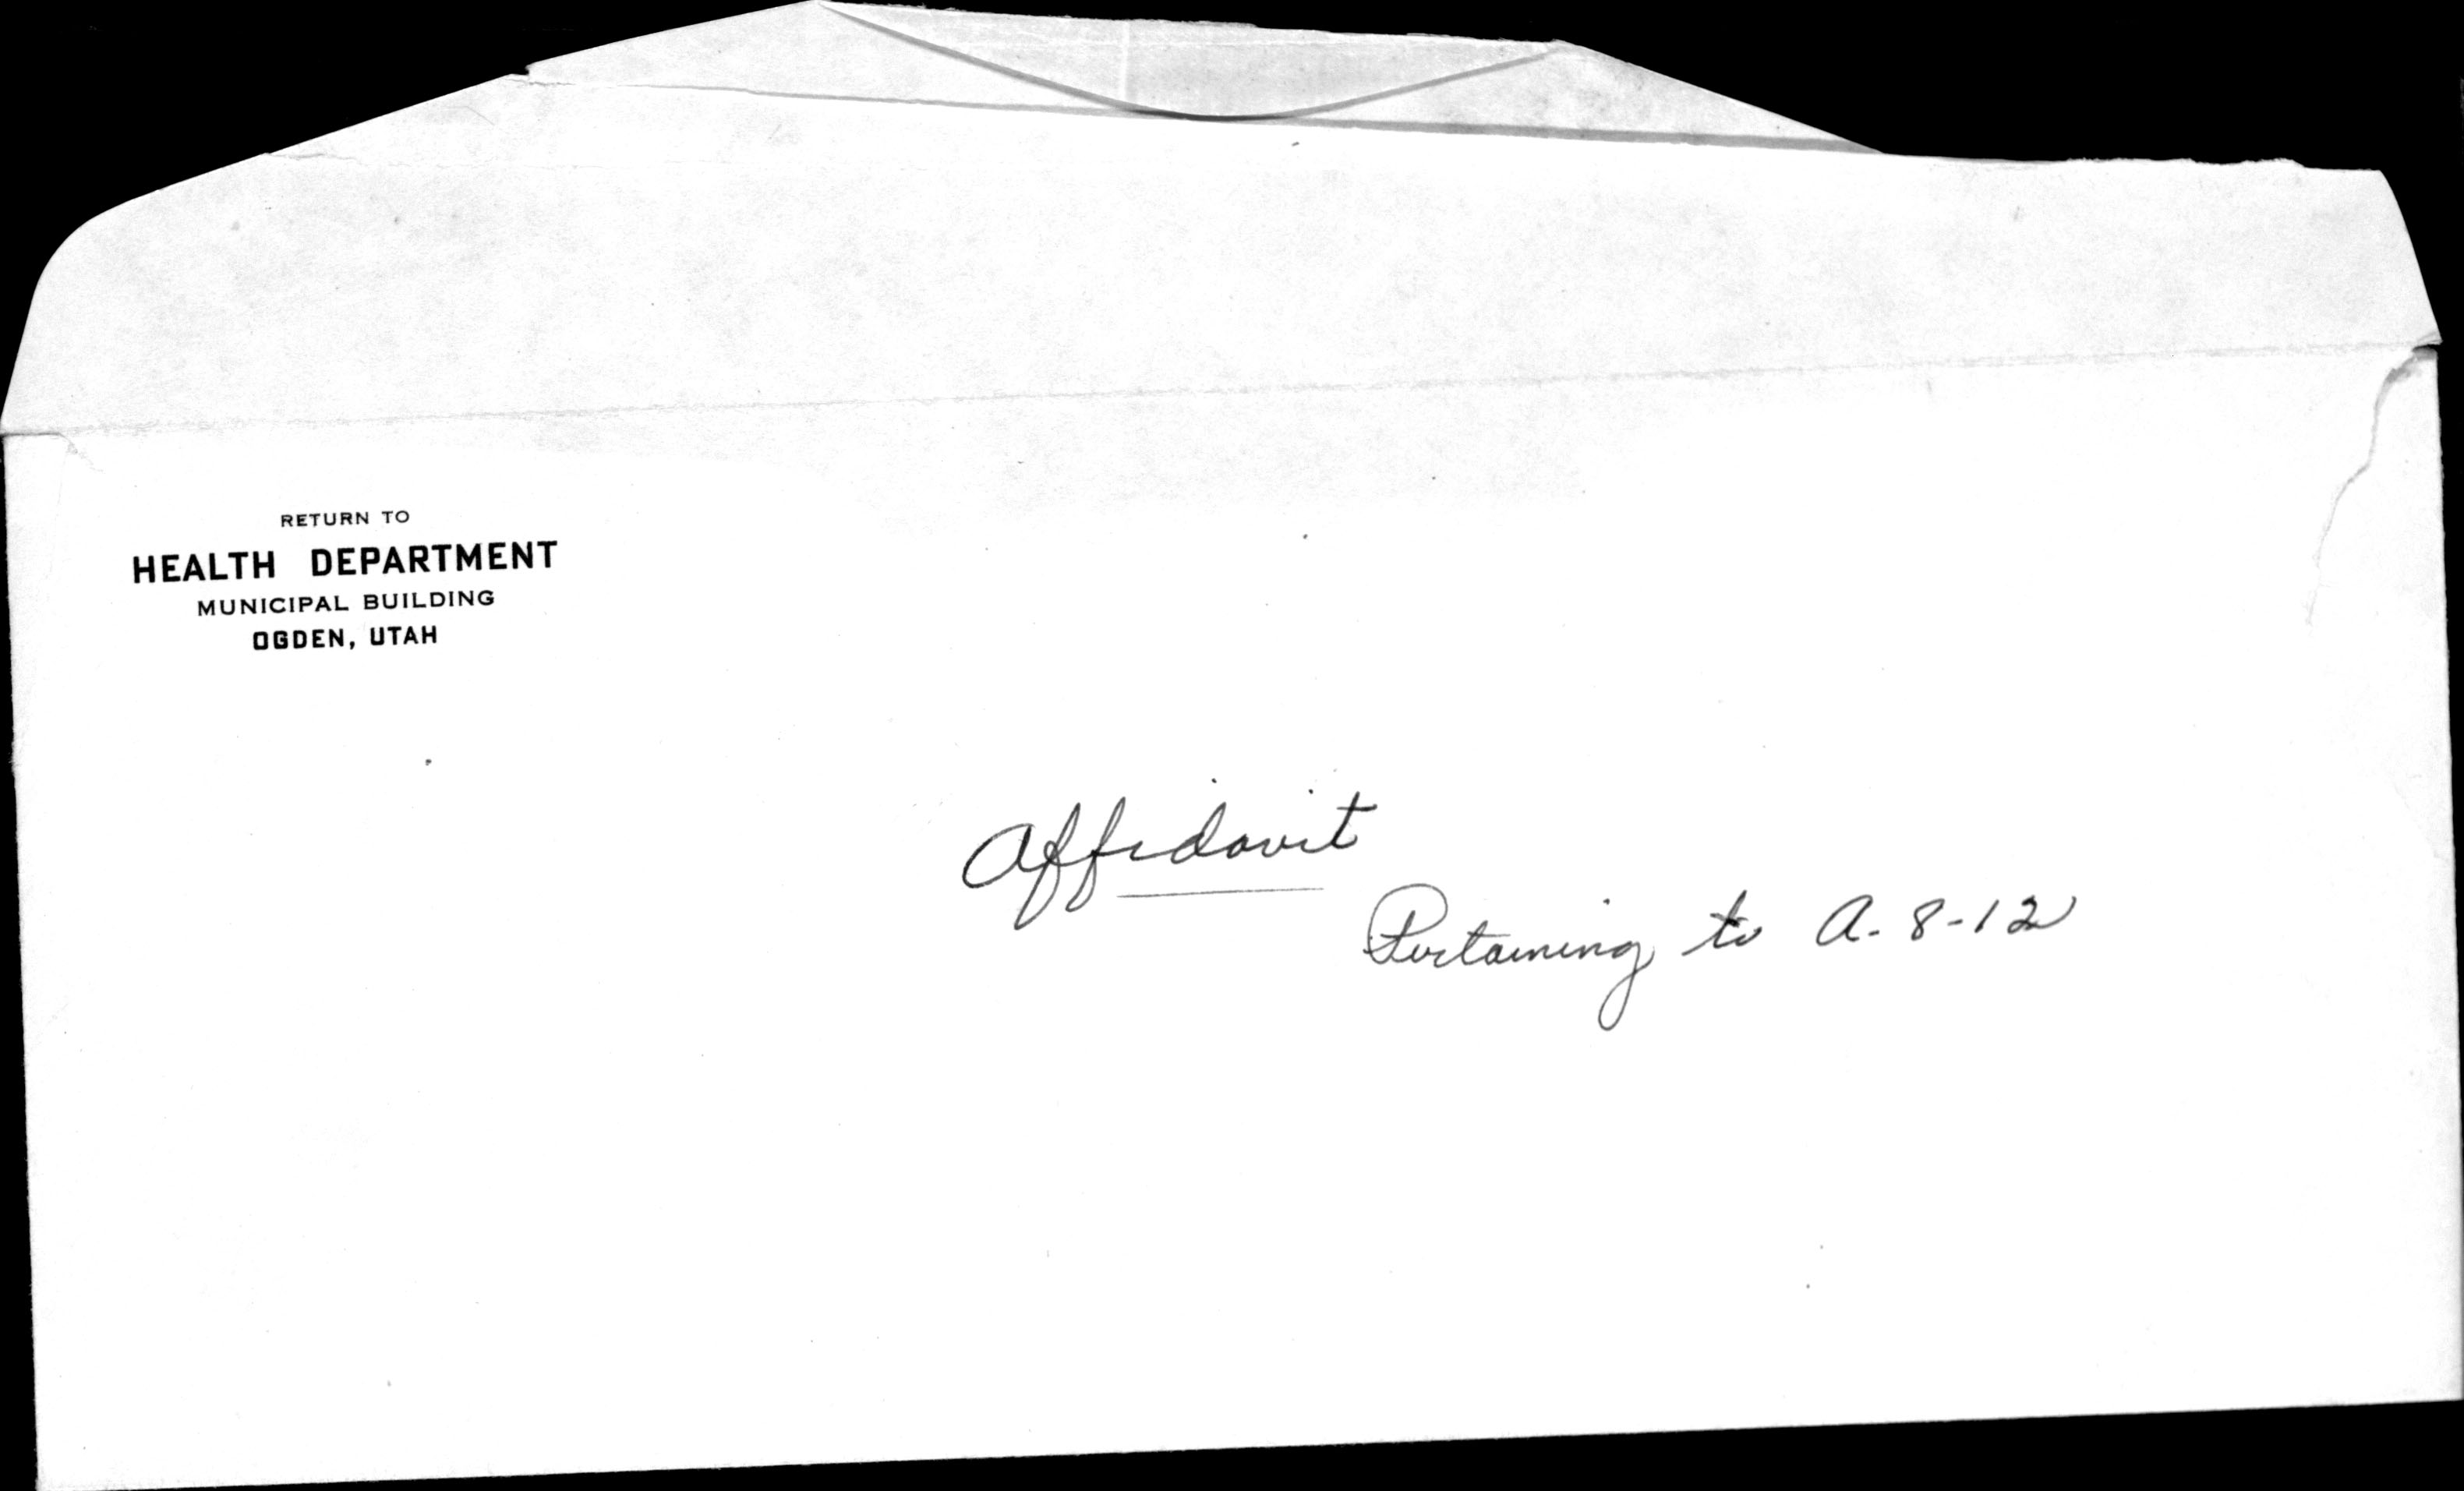 RETURN TO
HEALTH DEPARTMENT
MUNICIPAL BUILDING
OGDEN, UTAH
Affidavit
Pertaining to A-8-12